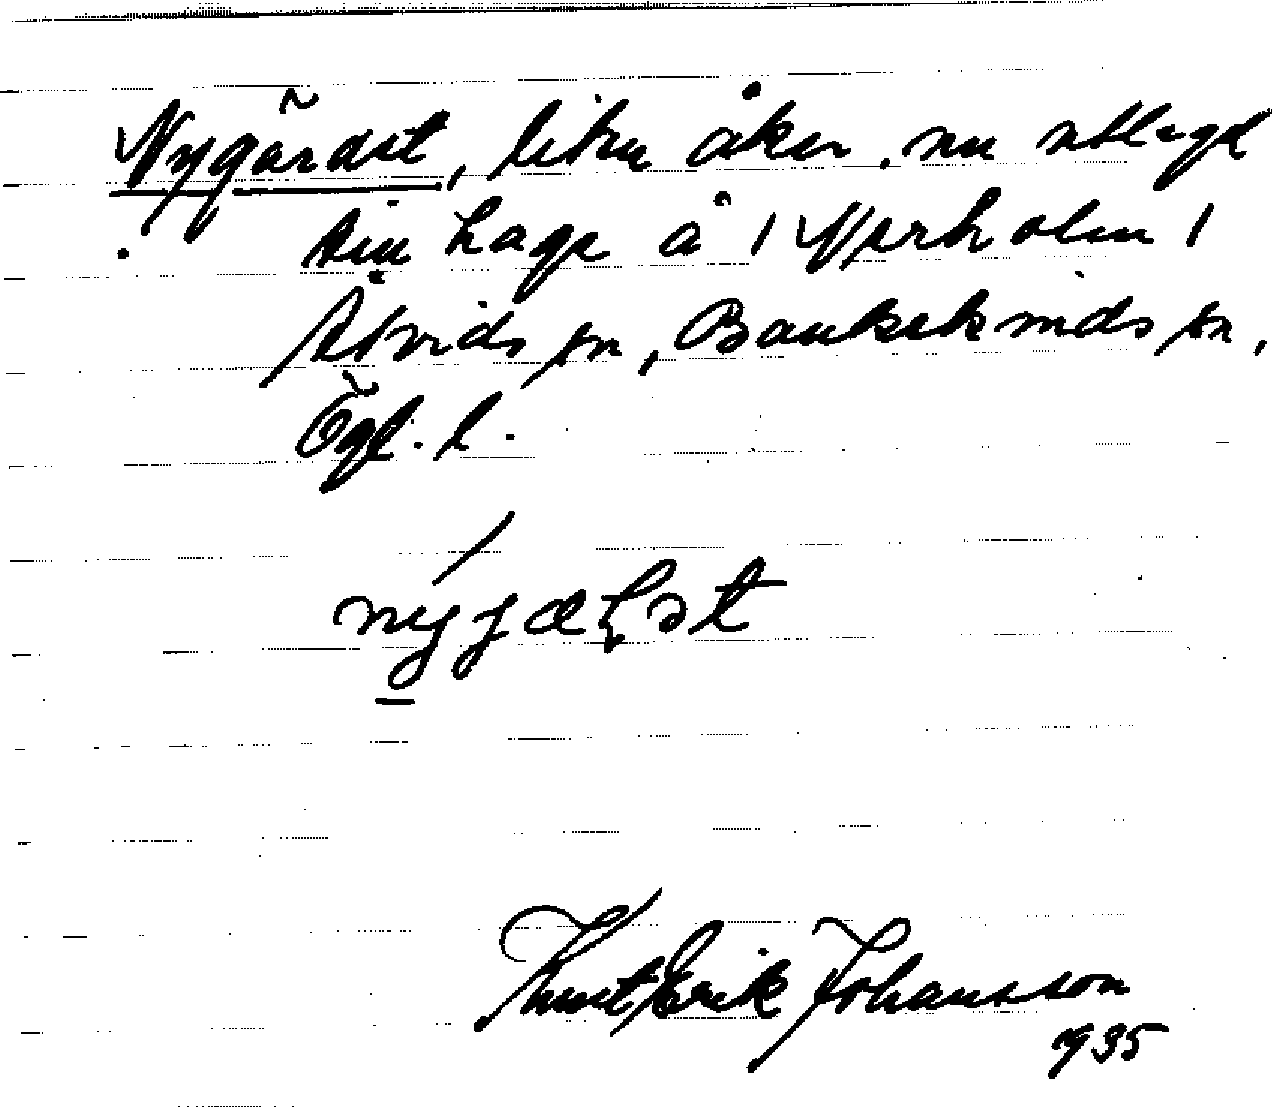 Nygärdet, liten åker, nu utlagd
till hage å / Ytterholm /
Åtvids sn, Bankekinds sn,
Ögl. l.
Knut Erik Johansson
1935